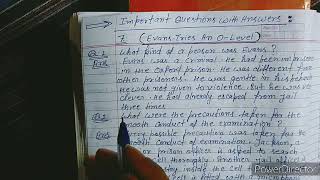 Important Questions with Answers
7. (Evans Tries An O-Level)
Q.1 What kind of a person was Evans?
Ans Evans was a Criminal. He had been imprison
in the oxford prison. He was different for
other prisoners. He was gentle in his behav
He was not given to violence. But he was ve
clever. He had already escaped from jail
three times
Q.2 What were the precautions taken for the
smooth conduct of the examination?
Ans Every possible precaution was taken for th
smooth conduct of examination. Jackson, a
prison officer is asked to search
cell thoroughly. Another jail officer
stay inside the cell
PowerDirector